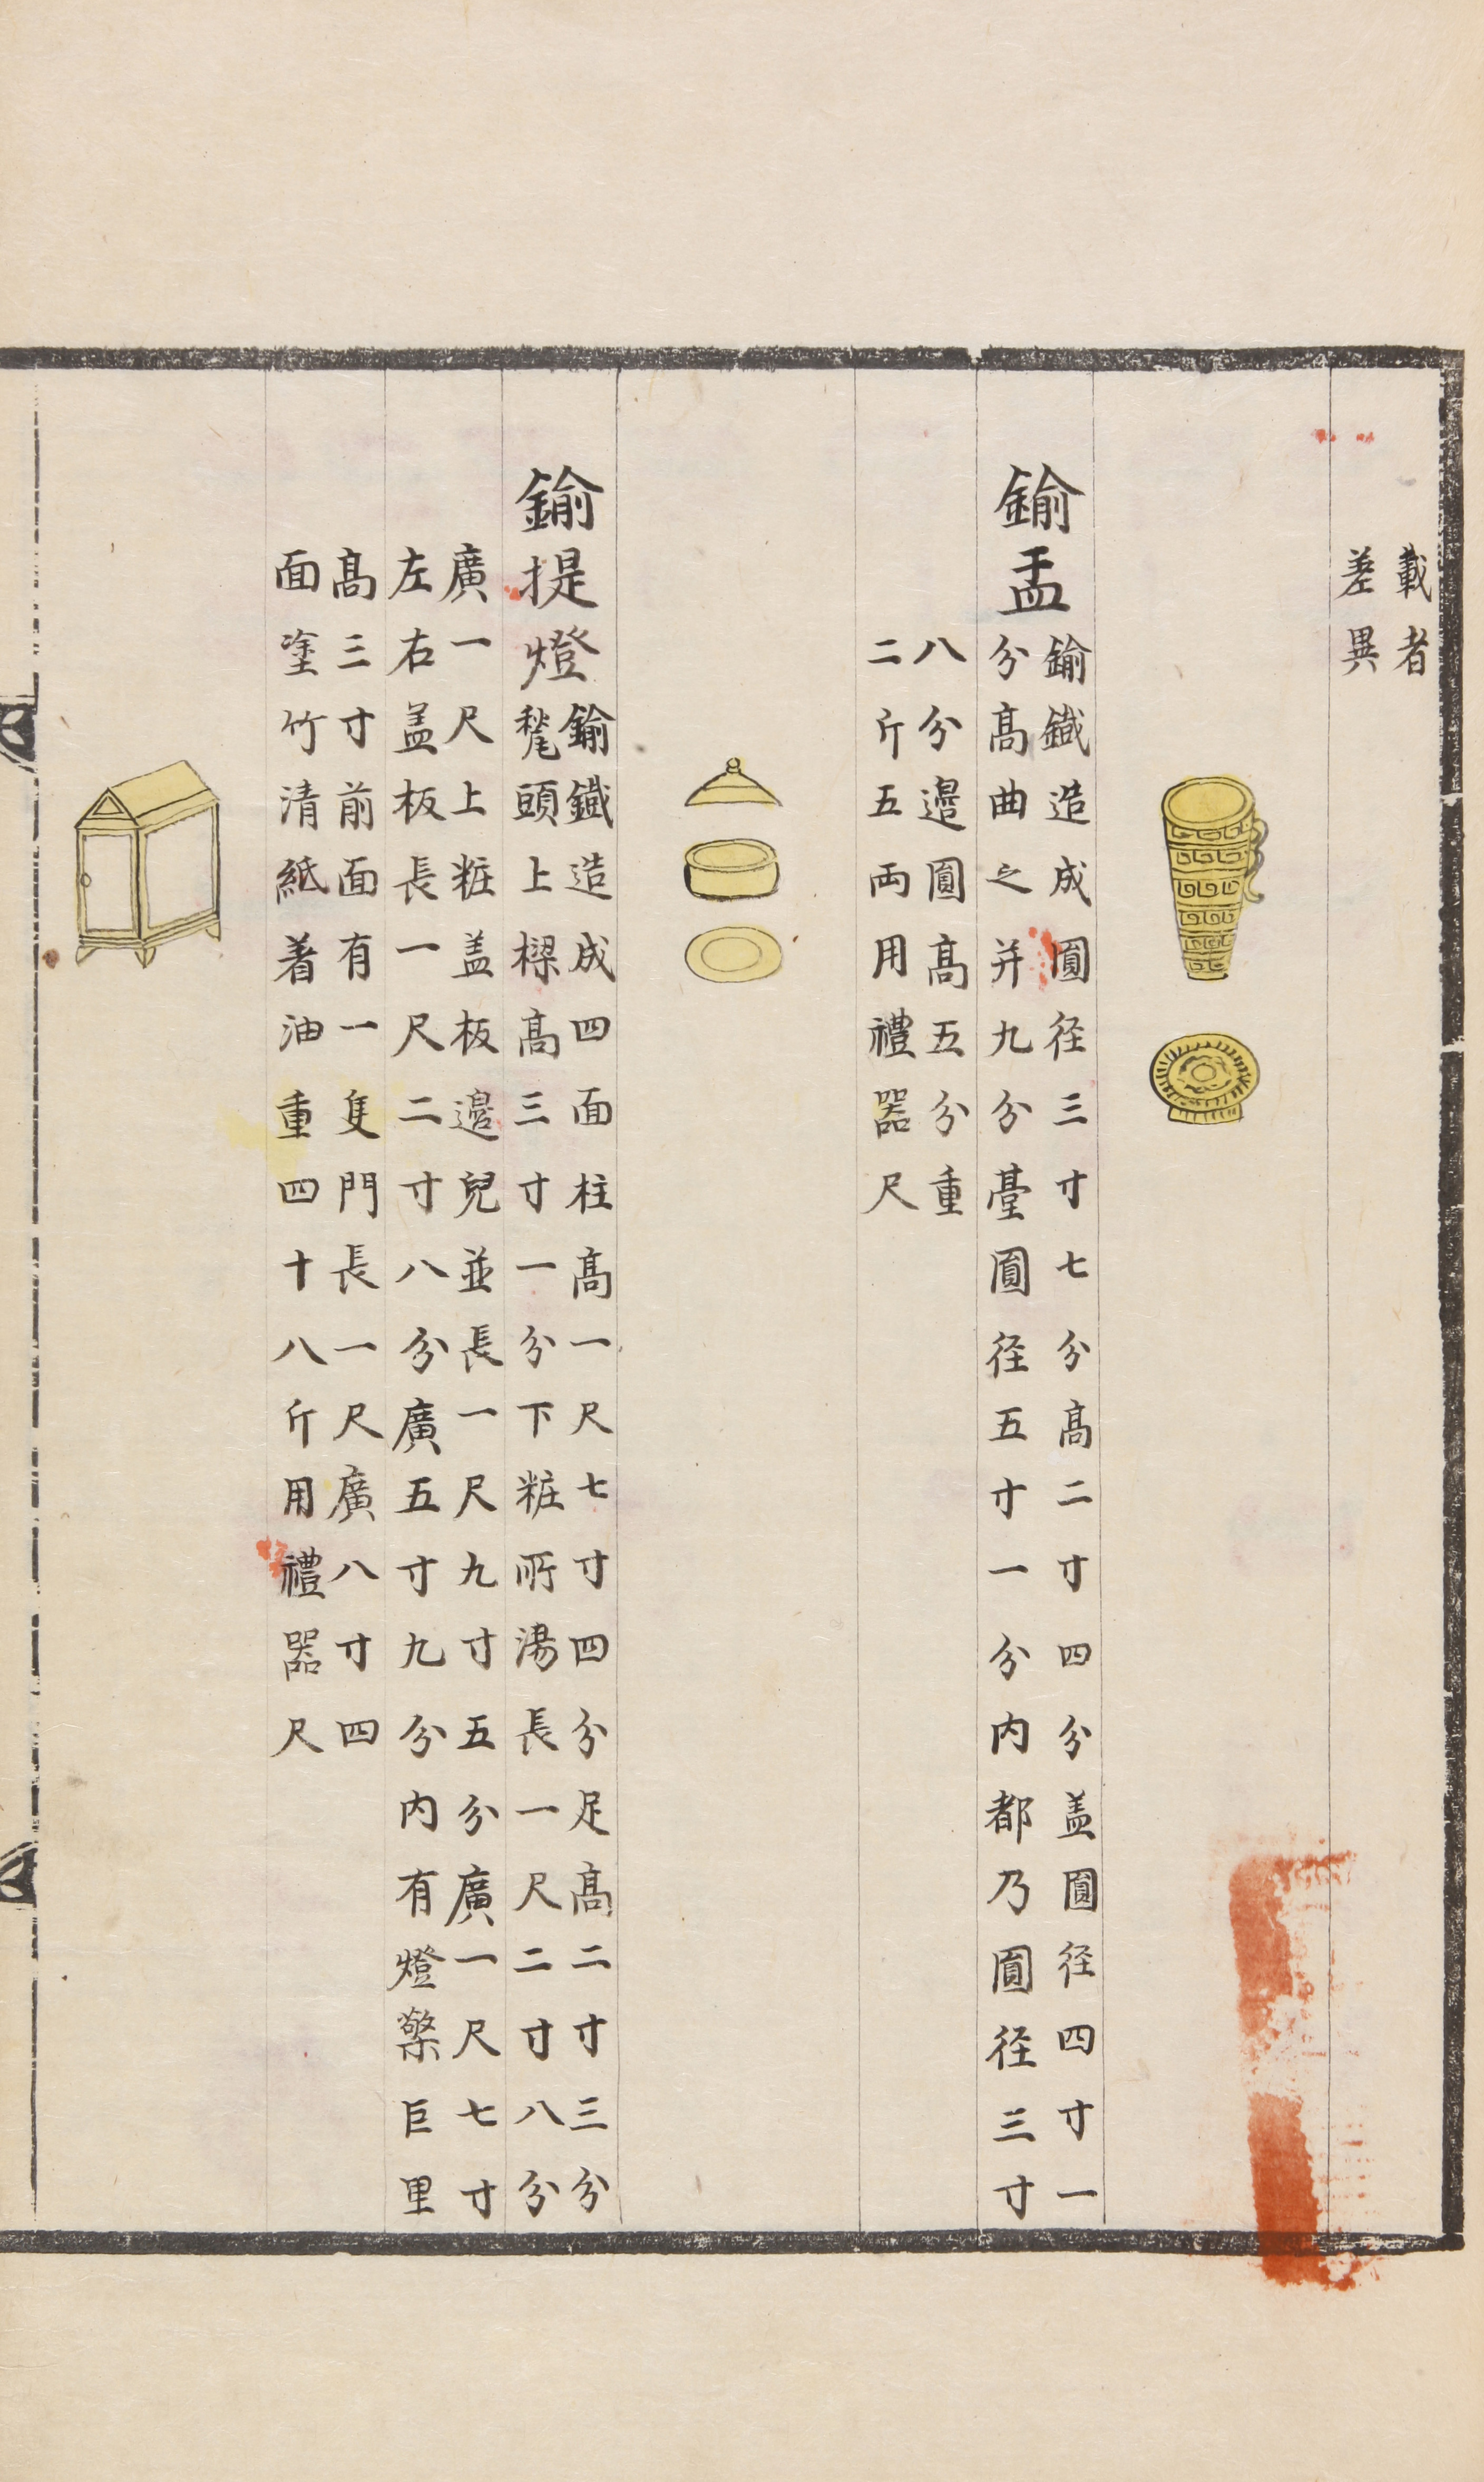 載者
差異
鍮盂
鍮鐡造成圎径三寸七分高二寸四分盖圎径四寸一
分高曲之并九分臺圎径五寸一分内都乃圎径三寸
八分邉圎高五分重
二斤五両用禮器尺
鍮提燈
鍮鐡造成四面柱高一尺七寸四分足高二寸三分
頭上樑高三寸一分下粧所湯長一尺二寸八分
廣一尺上粧盖板邉兒並長一尺九寸五分廣一尺七寸
左右盖板長一尺二寸八分廣五寸九分内有燈檠巨里
高三寸前面有一隻門長一尺廣八寸四
面塗竹清紙着油重四十八斤用禮器尺